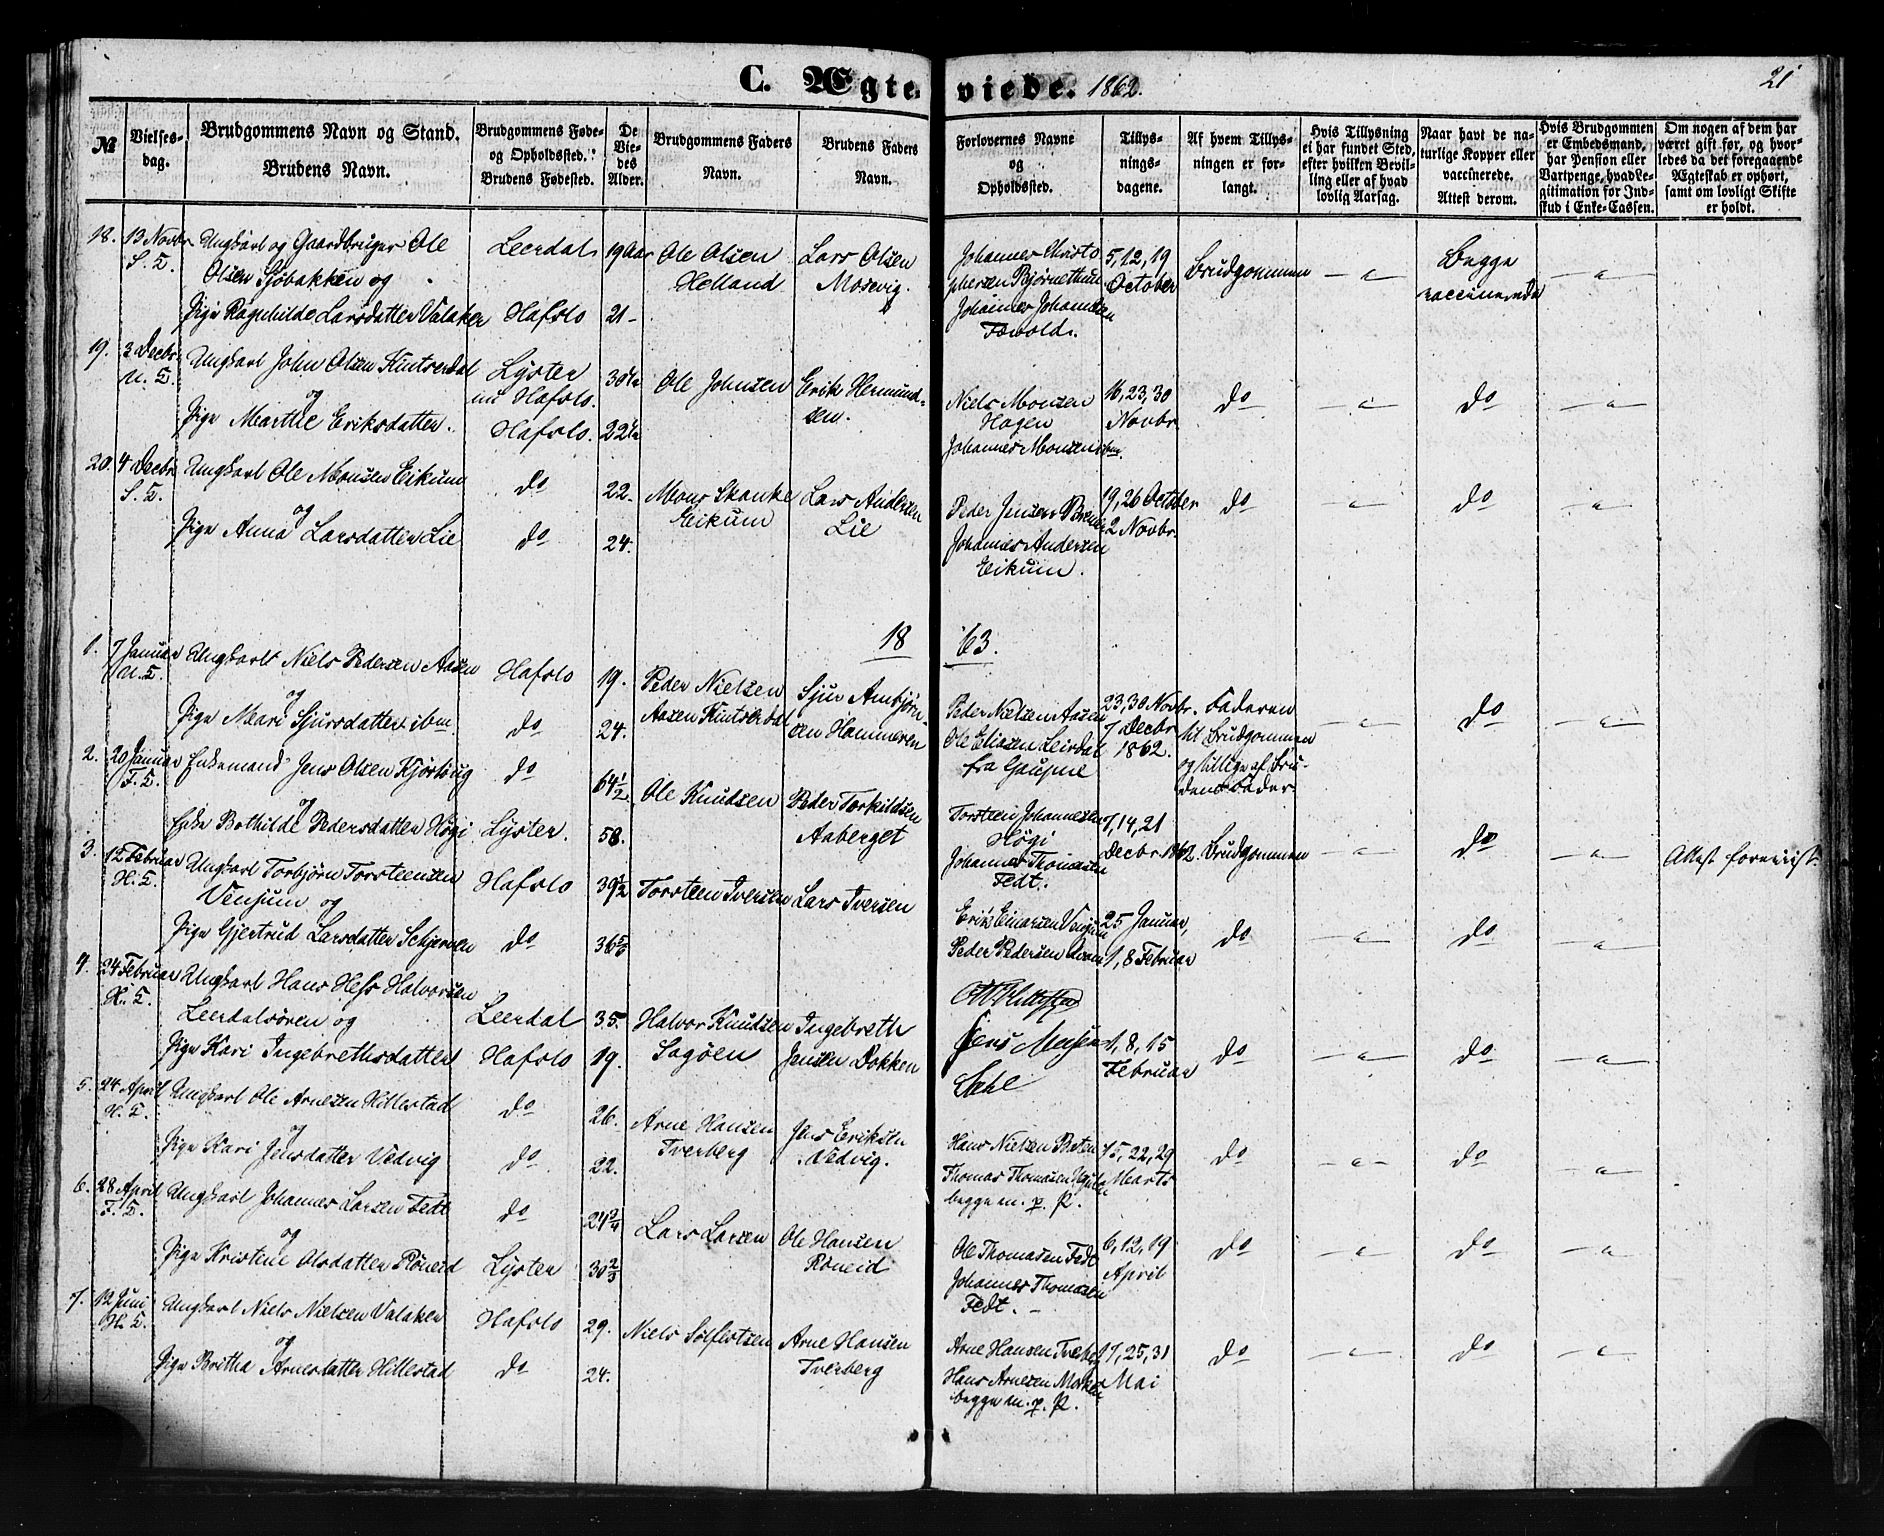 C. Ægteviede. 1862.
21
№
Vielses-dag.
Brudgommens Navn og Stand.
Brudens Navn.
Brudgommens Føde- og Opholdssted.
Brudens Fødested.
De Viedes Alder.
Brudgommens Faders Navn.
Brudens Faders Navn.
Forlovernes Navne og Opholdssted.
Tillysningsdagene.
Af hvem Tillysningen er forlangt.
Hvis Tillysning ei har fundet Sted, efter hvilken Bevilling eller af hvad lovlig Aarsag.
Naar havt de naturlige Kopper eller vaccinerede.
Attest derom.
Hvis Brudgommen er Embedsmand, har Pension eller Vartpenge, hvad Legitimation for Indskud i Enke-Cassen.
Om nogen af dem har været gift før, og hvorledes da det foregaaende Ægteskab er ophørt, samt om lovligt Skifte er holdt.
18. 13 Novbr S. T.
Ungkarl og Gaardbruger Ole
Olsen Sjöbakken og
Pige Ragnhilde Larsdatter Valaker
Leerdal 19 Aar
Hafslo 21
Ole Olsen Helland
Lars Olsen Mosevig.
Johannes Christophersen Bjørnethun
Johannes Johannesen
5, 12, 19 October
Brudgommen
Begge vaccinerede
19. 3 Decbr U. T.
Ungkarl John Olsen Kintserdal
og
Pige Marthe Eriksdatter.
Lyster nu Hafslo. 30
Hafslo. 22
Ole Johnsen
Erik Hermundsen.
Niels Monsen Hagen
Johannes Monsen ibm.
16, 23, 30 Novbr
do
do
20. 4 Decbr S. T.
Ungkarl Ole Monsen Eikum
og
Pige Anna Larsdatter Lie
do 22.
do 24.
Mons Skanke Eikum
Lars Andersen Lie
Peder Jensen
Johannes Andersen Eikum.
19, 26 October 2 Novbr.
do
do
1863.
1. 7 Januar U. T.
Ungkarl Niels Pedersen Aasen
og
Pige Mari Sjursdatter ibm.
Hafslo 19.
do 24.
Peder Nielsen Aasen Kintserdal
Sjur Ambjørnsen Hammeren
Peder Nielsen Aasen
Ole Eliasen Leirdal fra Gaupne
23, 30 Novbr. 7 Decbr 1862.
Faderen til Brudgommen og tillige af Brudens Fader
do
2. 20 Januar F. T.
Enkemand Jens Olsen Kjørlaug
og
Enke Bothilde Pedersdatter Høgi
do 64½
Lyster. 58.
Ole Knudsen
Peder Torkildsen Aaberget
Torsteen Johannesen Høgi
Johannes Thomasen Fedt.
7, 14, 21 Decbr 1862.
Brudgommen
do
Attest foreviist.
3. 12 Februar H. T.
Ungkarl Torbjørn Torsteensen
Venjum og
Pige Gjertrud Larsdatter Schjerven
Hafslo 39½
do 36
Torsteen Iversen
Lars Iversen
Erik Einarsen Venjum
Peder Pedersen
25 Januar, 1, 8 Februar
do
do
4. 24 Februar H. T.
Ungkarl Hans Hess Halvorsen
Leerdalsøren og
Pige Kari Ingebrethsdatter
Leerdal 35.
Hafslo 19.
Halvor Knudsen Sagøen
Ingebreth Jensen Dokken
Jens
1, 8, 15 Februar
do
do
5. 24 April H. T.
Ungkarl Ole Arnesen Hillestad
og
Pige Kari Jensdatter Vedvig
do 26.
do 22.
Arne Hansen Tverberg
Jens Eriksen Vedvig.
Hans Nielsen
Thomas Thomasen
begge m. p. P.
15, 22, 29 Marts
do
do
6. 28 April F. T.
Ungkarl Johannes Larsen Fedt
og
Pige Kristine Olsdatter Røneid
do 24¾
Lyster 30⅔
Lars Larsen
Ole Hansen Røneid
Ole Thomasen Fedt
Johannes Thomasen Fedt.
6, 12, 19 April
do
do
7. 12 Juni H. T.
Ungkarl Niels Nielsen Valaker
og
Pige Britha Arnesdatter Hillestad
Hafslo 29.
do 24.
Niels Solfestsen
Arne Hansen Tverberg
Arne Hansen Tverberg
Hans Arnesen
begge m. p. P.
17, 25, 31 Mai
do
do